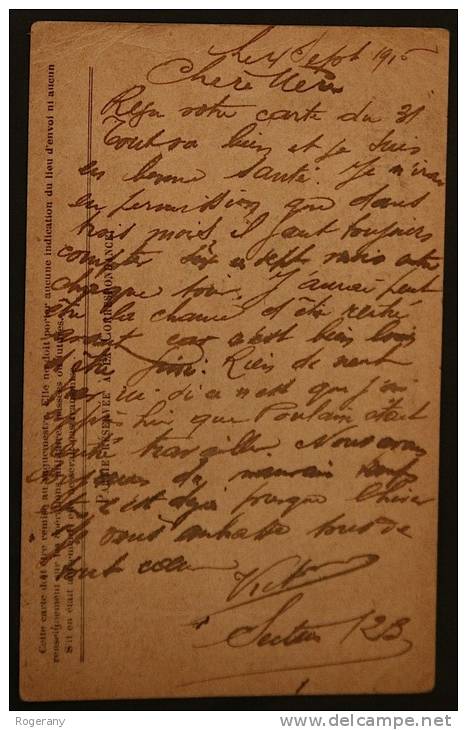 Le 4 Sept 1915
Chère Mère
Reçu votre carte du 31
Tout va bien et je suis
en bonne santé. Je n'irai
en permission que dans
trois mois il faut toujours
compter six ou sept mois entre
chaque tour. J'aurai peut
être la chance d'être
avant car c'est bien loin
d'être fini. Rien de neuf
par ici si ce n'est que j'ai
appris hier que Poulain était
travailler. Nous avons
du mauvais temps
c'est déjà presque l'hiver
Je vous embrasse tous de
tout cœur
Victor
Secteur 123
Cette carte doit être remise au vaguemestre. Elle ne doit porter aucune indication du lieu d'envoi ni aucun
renseignement sur les opérations militaires passées ou futures.
S'il en était autrement, elle ne serait pas transmise.
PARTIE RÉSERVÉE A LA CORRESPONDANCE
Rogerany
www.delcampe.net